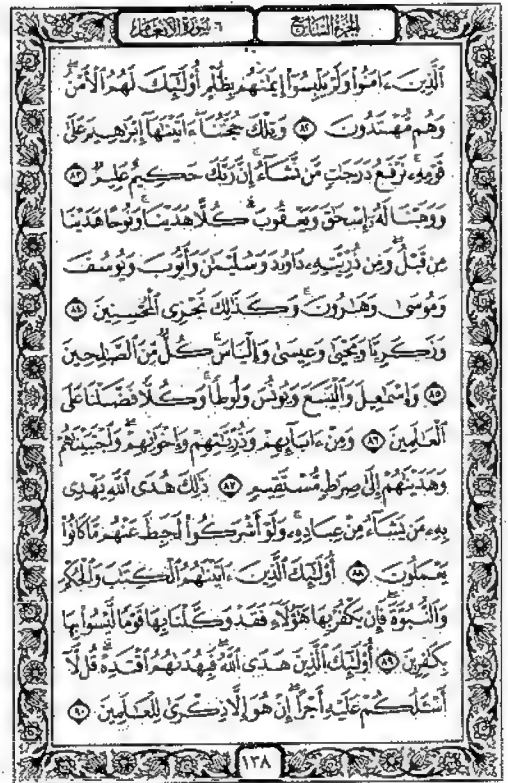 الجزء السابع
٦ سورة الأنعام
ٱلَّذِينَ ءَامَنُوا۟ وَلَمْ يَلْبِسُوٓا۟ إِيمَٰنَهُم بِظُلْمٍ أُو۟لَٰٓئِكَ لَهُمُ ٱلْأَمْنُ
وَهُم مُّهْتَدُونَ ۝٨٢ وَتِلْكَ حُجَّتُنَآ ءَاتَيْنَٰهَآ إِبْرَٰهِيمَ عَلَىٰ
قَوْمِهِۦ ۚ نَرْفَعُ دَرَجَٰتٍ مَّن نَّشَآءُ ۗ إِنَّ رَبَّكَ حَكِيمٌ عَلِيمٌ ۝٨٣
وَوَهَبْنَا لَهُۥٓ إِسْحَٰقَ وَيَعْقُوبَ ۚ كُلًّا هَدَيْنَا ۚ وَنُوحًا هَدَيْنَا
مِن قَبْلُ ۖ وَمِن ذُرِّيَّتِهِۦ دَاوُۥدَ وَسُلَيْمَٰنَ وَأَيُّوبَ وَيُوسُفَ
وَمُوسَىٰ وَهَٰرُونَ ۚ وَكَذَٰلِكَ نَجْزِى ٱلْمُحْسِنِينَ ۝٨٤
وَزَكَرِيَّا وَيَحْيَىٰ وَعِيسَىٰ وَإِلْيَاسَ ۖ كُلٌّ مِّنَ ٱلصَّٰلِحِينَ
۝٨٥ وَإِسْمَٰعِيلَ وَٱلْيَسَعَ وَيُونُسَ وَلُوطًا ۚ وَكُلًّا فَضَّلْنَا عَلَى
ٱلْعَٰلَمِينَ ۝٨٦ وَمِنْ ءَابَآئِهِمْ وَذُرِّيَّٰتِهِمْ وَإِخْوَٰنِهِمْ ۖ وَٱجْتَبَيْنَٰهُمْ
وَهَدَيْنَٰهُمْ إِلَىٰ صِرَٰطٍ مُّسْتَقِيمٍ ۝٨٧ ذَٰلِكَ هُدَى ٱللَّهِ يَهْدِى
بِهِۦ مَن يَشَآءُ مِنْ عِبَادِهِۦ ۚ وَلَوْ أَشْرَكُوا۟ لَحَبِطَ عَنْهُم مَّا كَانُوا۟
يَعْمَلُونَ ۝٨٨ أُو۟لَٰٓئِكَ ٱلَّذِينَ ءَاتَيْنَٰهُمُ ٱلْكِتَٰبَ وَٱلْحُكْمَ
وَٱلنُّبُوَّةَ ۚ فَإِن يَكْفُرْ بِهَا هَٰٓؤُلَآءِ فَقَدْ وَكَّلْنَا بِهَا قَوْمًا لَّيْسُوا۟ بِهَا
بِكَٰفِرِينَ ۝٨٩ أُو۟لَٰٓئِكَ ٱلَّذِينَ هَدَى ٱللَّهُ ۖ فَبِهُدَىٰهُمُ ٱقْتَدِهْ ۗ قُل لَّآ
أَسْـَٔلُكُمْ عَلَيْهِ أَجْرًا ۖ إِنْ هُوَ إِلَّا ذِكْرَىٰ لِلْعَٰلَمِينَ ۝٩٠
١٣٨